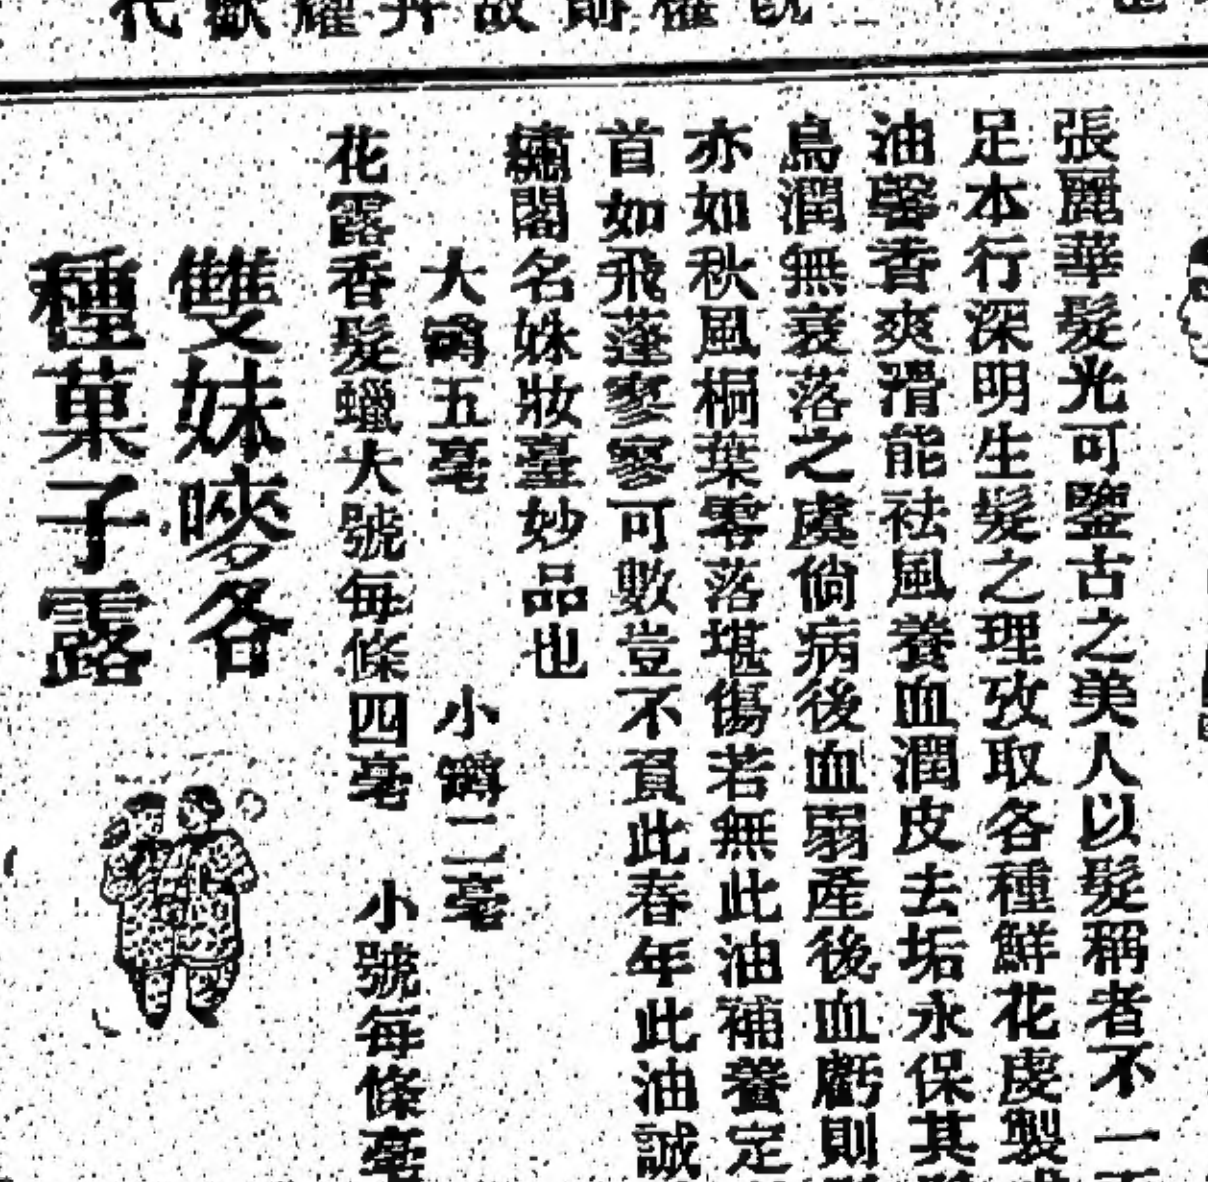 張麗華髮光可鑒古之美人以髮稱者不一
足本行深明生髮之理攷取各種鮮花虔製
油馨香爽滑能祛風養血潤皮去垢永保其
烏潤無衰落之虞倘病後血弱產後血虧則
亦如秋風桐葉零落堪傷若無此油補養定
首如飛蓬寥寥可數豈不負此春年此油誠
繡閣名姝妝臺妙品也
大罇五毫 小罇二毫
花露香髮蠟大號每條四毫 小號每條毫
雙妹嘜各
種菓子露